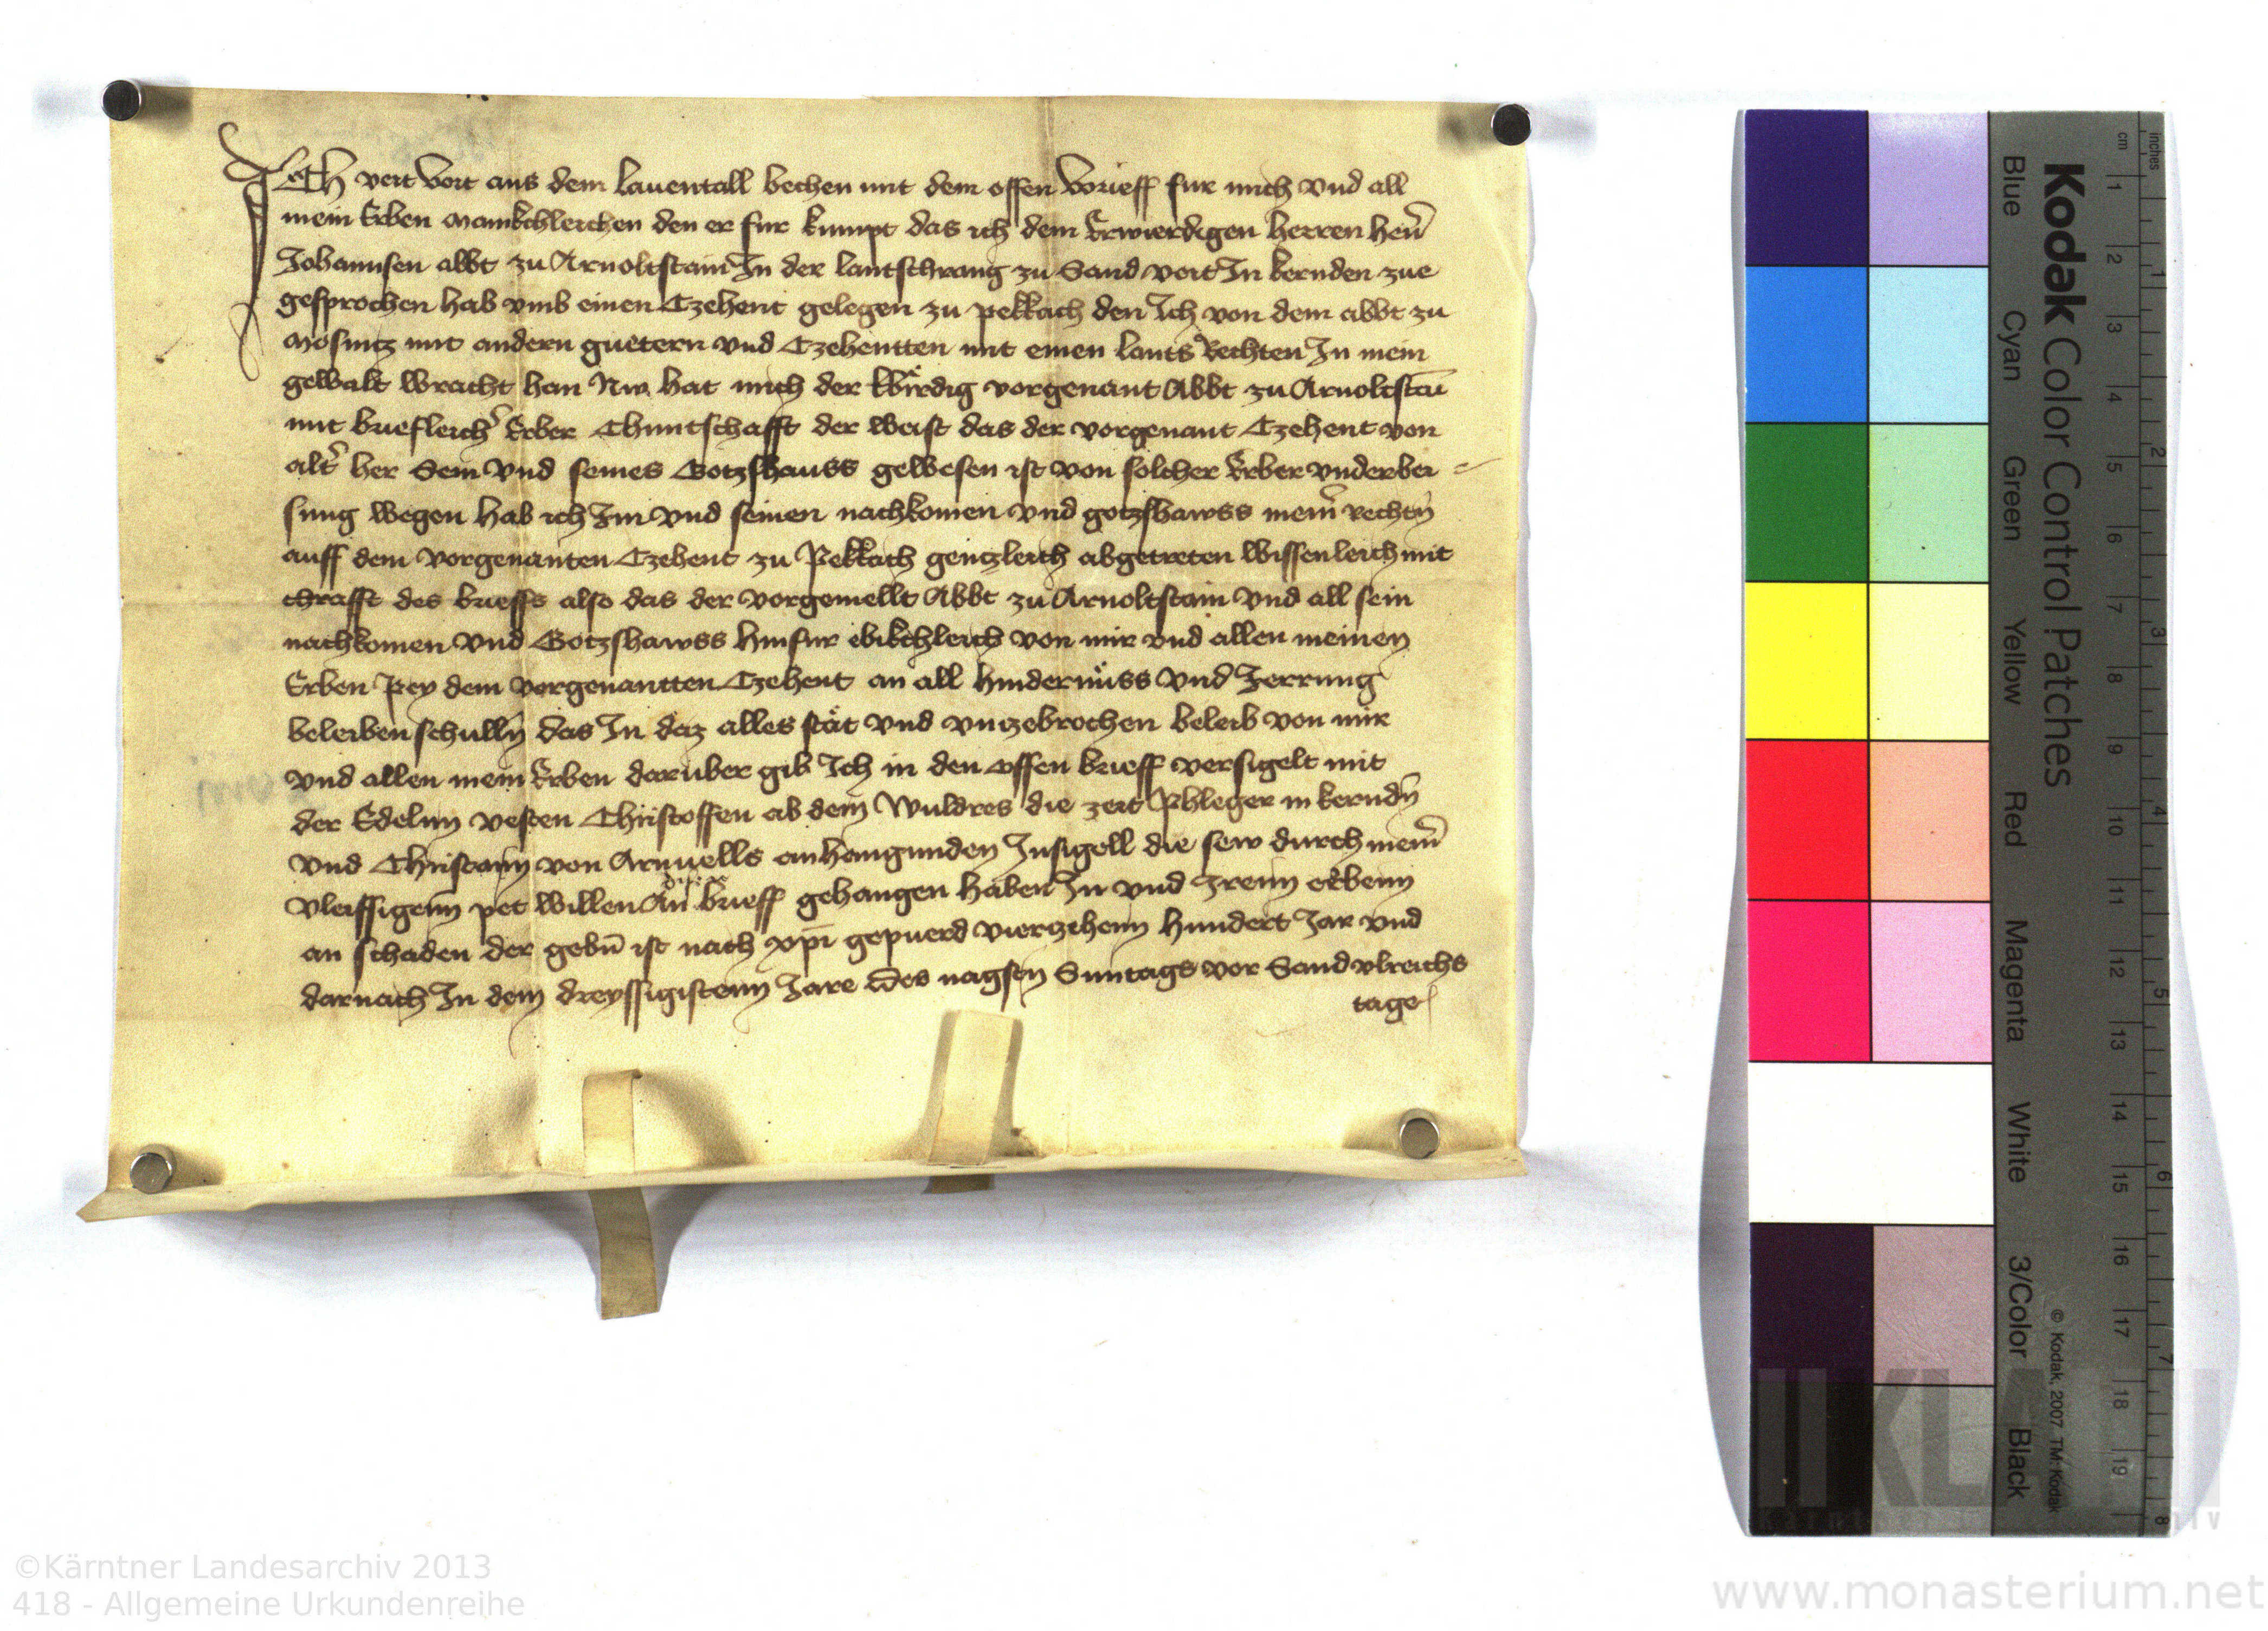 Ich veit vort aus dem lauentall bechen mit dem offen brieff fur mich vnd all
mein Erben manikchleichen den er fur kumpt das ich dem Erwierdigen herren hern̄
Johannsen abbt zu Arnoltstain In der lantschrang zu Sand veit In kernden zue
gesprochen hab vmb einen Czehent gelegen zu pekkach den Ich von dem abbt zu
mosnitz mit andern guetern vnd Czehentten mit einen lants Rechten In mein
gewalt wracht han Nw hat mich der wirdig vorgenant Abbt zu Arnoltstain
mit briefleich̄ Erber Chuntschafft der weist das der vorgenant Czehent von
alt̄ her Sein vnd seines Gotzshauss gewesen ist von solcher Erber vnderbei
sung wegen hab ich Im vnd seinen nachkomen vnd gotzshawss mein̄ rechtn̄
auff dem vorgenanten Czehent zu Pekkach genczleich abgetreten wissenleich mit
chrafft des brieffs also das der vorgemellt Abbt zu Arnoltstain vnd all sein
nachkomen vnd Gotzshawss hinfur ebikchleich von mir vnd allen meinen
Erben Pey dem vorgenantten Czehent an all hindernüss vnd Jrrung
beleiben schulln̄ das In daz alles stät vnd vnczebrochen beleib von mir
vnd allen mein Erben daruber gib Ich in den offen brieff versigelt mit
der Edelnn vesten Christoffen ab dem Wuldres die zeit Phleger in kerndn̄
vnd Christann von Arnuells anhangunden Insigell die sew durch mein̄
vleissigenn pet willen An disen brieff gehangen haben In vnd Irenn erbenn
an schaden der gebn̄ ist nach xpī gepuerd vierczehenn hundert Jar vnd
darnach In dem dreyssigistenn Jare des nagsten Suntags vor Sand vlreichs
tage
Kodak Color Control Patches
Blue Cyan Green Yellow Red Magenta White 3/Color Black
© Kodak, 2007 TM: Kodak
cm 1 2 3 4 5 6 7 8 9 10 11 12 13 14 15 16 17 18 19
inches 1 2 3 4 5 6 7 8
KLA
©Kärntner Landesarchiv 2013
418 - Allgemeine Urkundenreihe
www.monasterium.net